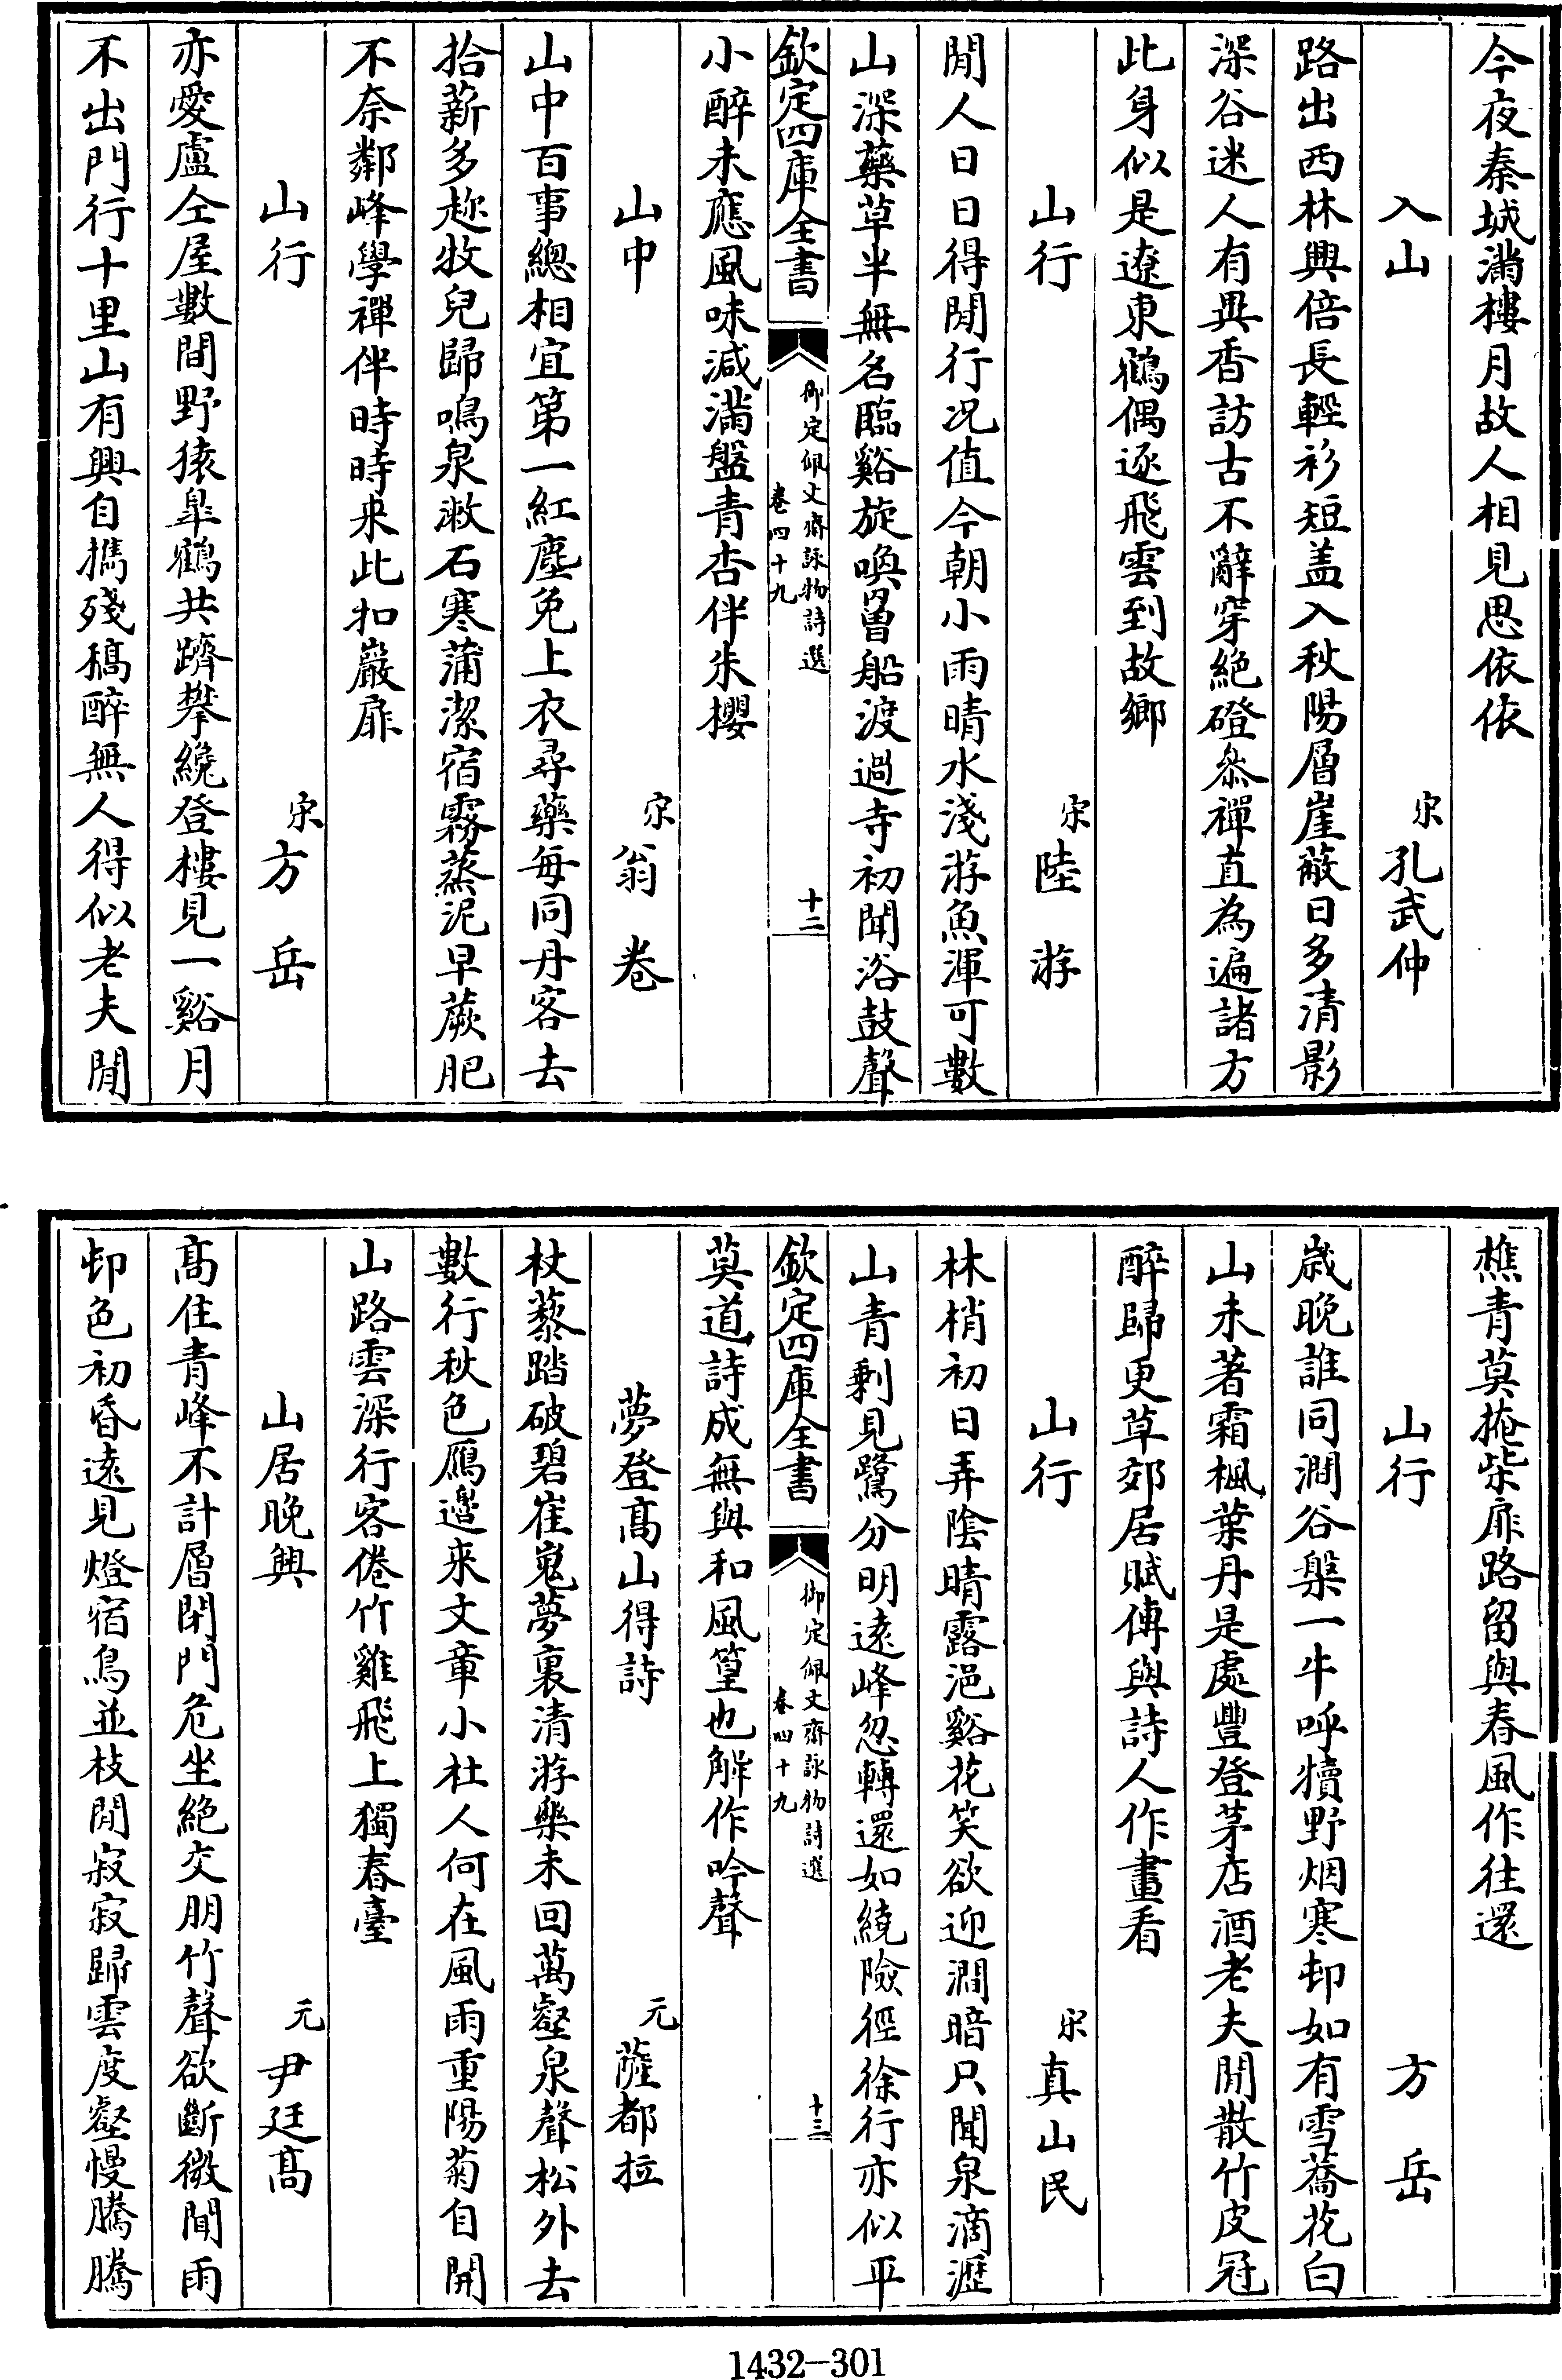 今夜秦城滿樓月故人相見思依依
入山　宋孔武仲
路出西林興倍長輕衫短盖入秋陽層崖蔽日多清影
深谷迷人有異香訪古不辭穿絶磴叅禪直為遍諸方
此身似是遼東鶴偶逐飛雲到故鄉
山行　宋陸游
閒人日日得閒行况值今朝小雨晴水淺游魚渾可數
山深藥草半無名臨谿旋喚罾船渡過寺初聞浴鼓聲
欽定四庫全書　御定佩文齋詠物詩選卷四十九　十二
小醉未應風味減滿盤青杏伴朱櫻
山中　宋翁卷
山中百事總相宜第一紅塵免上衣尋藥每同丹客去
拾薪多趂牧兒歸鳴泉漱石寒蒲潔宿霧蒸泥早蕨肥
不奈鄰峰學禪伴時時来此扣巖扉
山行　宋方岳
亦愛盧仝屋數間野猿臯鶴共躋攀纔登樓見一谿月
不出門行十里山有興自攜殘稿醉無人得似老夫閒
樵青莫掩柴扉路留與春風作往還
山行　方岳
歲晚誰同澗谷槃一牛呼犢野烟寒邨如有雪蕎花白
山未著霜楓葉丹是處豐登茅店酒老夫閒散竹皮冠
醉歸更草郊居賦傳與詩人作畫看
山行　宋真山民
林梢初日弄陰晴露浥谿花笑欲迎澗暗只聞泉滴瀝
山青剩見鷺分明遠峰忽轉還如繞險徑徐行亦似平
欽定四庫全書　御定佩文齋詠物詩選卷四十九　十三
莫道詩成無與和風篁也解作吟聲
夢登髙山得詩　元薩都拉
杖藜踏破碧崔嵬夢裏清游樂未回萬壑泉聲松外去
數行秋色鴈邉来文章小杜人何在風雨重陽菊自開
山路雲深行客倦竹雞飛上獨春臺
山居晚興　元尹廷髙
髙住青峰不計層閉門危坐絶交朋竹聲欲斷微聞雨
邨色初昏遠見燈宿鳥並枝閒寂寂歸雲度壑慢騰騰
1432-301